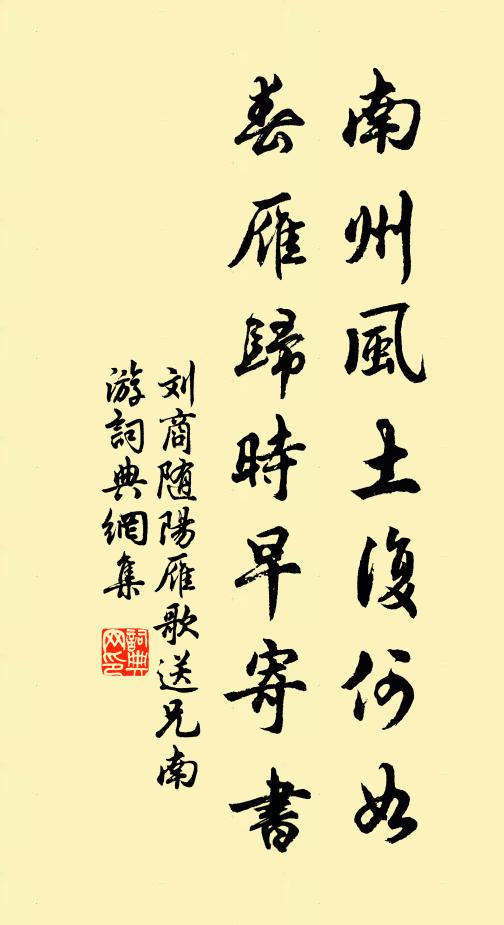 南州風土復何如
春雁歸時早寄書
刘商随陽雁歌送兄南
游詞典網集
詞典
网印